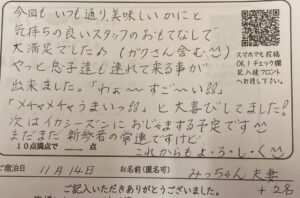 今回もいつも通り、美味しいかにと
気持ちの良いスタッフのおもてなしで
大満足でした♪(ガクさん含む^^)
やっと息子達も連れて来る事が
出来ました。「わぁ〜すご〜い!!」
「メチャメチャうまいっ!!」と大喜びしてました!
次はイカシーズンにおじゃまする予定です^^
まだまだ新参者の常連ですけど
これからもよ・ろ・し・く^^
スマホでも投稿
OK!チェック欄
記入後フロント
へお渡し下さい。
10点満点で 点
ご宿泊日 11月14日 お名前(匿名可) みっちゃん夫妻
+2名
ご記入いただきありがとうございました。